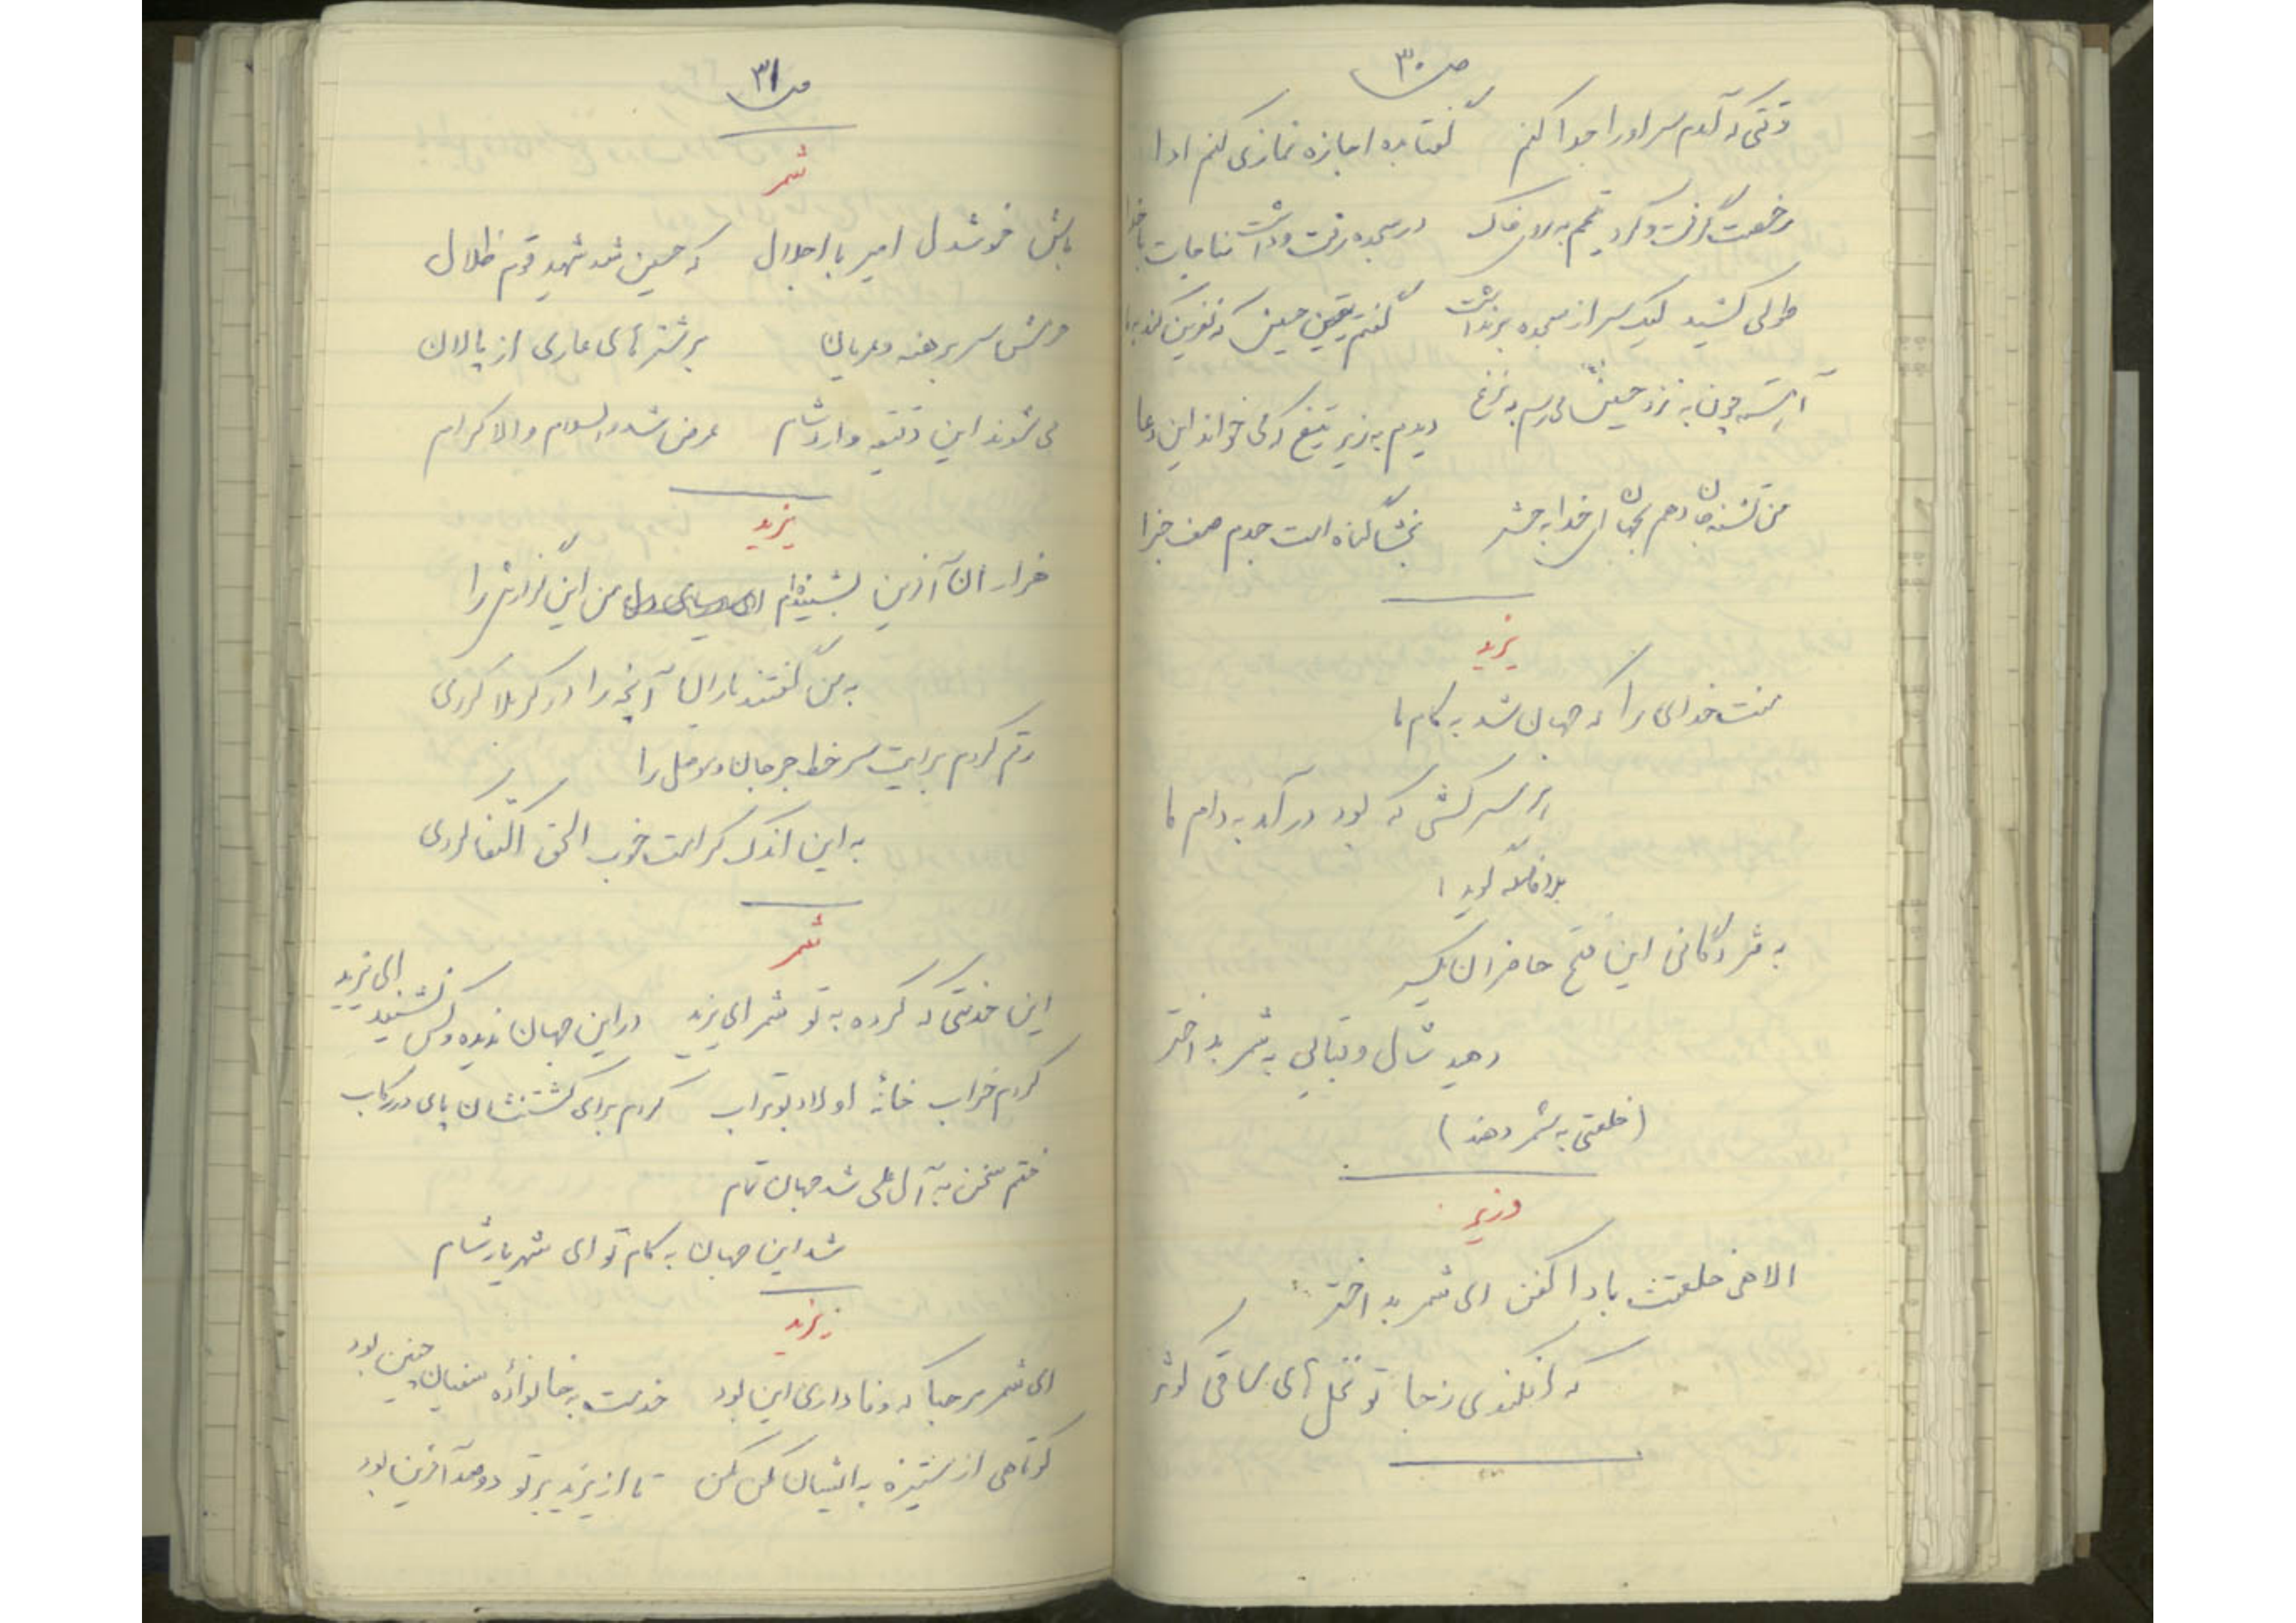 ص ۳۰
وقتی که آمدم سر او را جدا کنم    گفتا بده اجازه نمازی کنم ادا
رخصت گرفت و کرد تیمم به خاک    در سجده رفت و داشت مناجات با خدا
طولی کشید لیک سر از سجده برنداشت    گفتم یقین حسین که نفرین کند به ما
آهسته چون به نزد حسین
دیدم به زیر تیغ که می خواند این دعا
من تشنه جان دهم بجهان ای خدا به حشر    بخشا گناه امت جدم صف جزا
یزید
منت خدای را که جهان شد به کام ما
هر سرکشی که بود در آمد به دام ما
بلافاصله گوید:
به مژدگانی این فتح حاضران یکسر
دهید شال و قبایی به شمر بد اختر
(خلعتی به شمر دهند)
وزیر
الاهی خلعتت بادا کفن ای شمر بد اختر
که افکندی ز جا تو نخل های ساقی کوثر
ص ۳۱
شمر
باش خوشدل امیر با اجلال    که حسین شد شهید قوم ظلال
سر برهنه و عریان    بر شترهای عاری از پالان
می شوند این دقیقه وارد شام    عرض شد والسلام والاکرام
یزید
هزاران آفرین بشنیده ام من این گزارش را
به من گفتند یاران آنچه را در کربلا کردی
رقم کردم برایت سر خط جرجان و موصل را
به این اندک کرامت خوب الحق اکتفا کردی
شمر
این خدمتی که کرده به تو شمر ای یزید    در این جهان ندیده و کس نشنید ای یزید
کردم خراب خانهٔ اولاد بوتراب    کردم برای کشتنشان پای در رکاب
ختم سخن به آل علی شد جهان تمام
شد این جهان به کام تو ای شهریار شام
یزید
ای شمر مرحبا که وفاداری این بود    خدمت به خانوادهٔ سفیان چنین بود
کوتاهی از ستیزه به ایشان مکن مکن    تا از یزید بر تو دو صد آفرین بود